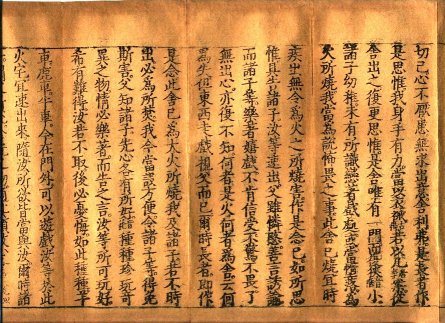 切己心不厭患無求出意舍利弗是長者作
是思惟我身手有力當以衣裓若以几案從
舍出之復更思惟是舍唯有一門而復狹小
諸子幼稚未有所識戀著戲處或當墮落為
火所燒我當為說怖畏之事此舍已燒宜時
疾出無令為火之所燒害作是念已如所思
惟具告諸子汝等速出父雖憐愍善言誘喻
而諸子等樂著嬉戲不肯信受不驚不畏了
無出心亦復不知何者是火何者為舍云何
為失但東西走戲視父而已爾時長者即作
是念此舍已為大火所燒我及諸子若不時
出必為所焚我今當設方便令諸子等得免
斯害父知諸子先心各有所好種種珍玩奇
異之物情必樂著而告之言汝等所可玩好
希有難得汝若不取後必憂悔如此種種羊
車鹿車牛車今在門外可以遊戲汝等於此
火宅宜速出來隨汝所欲皆當與汝爾時諸